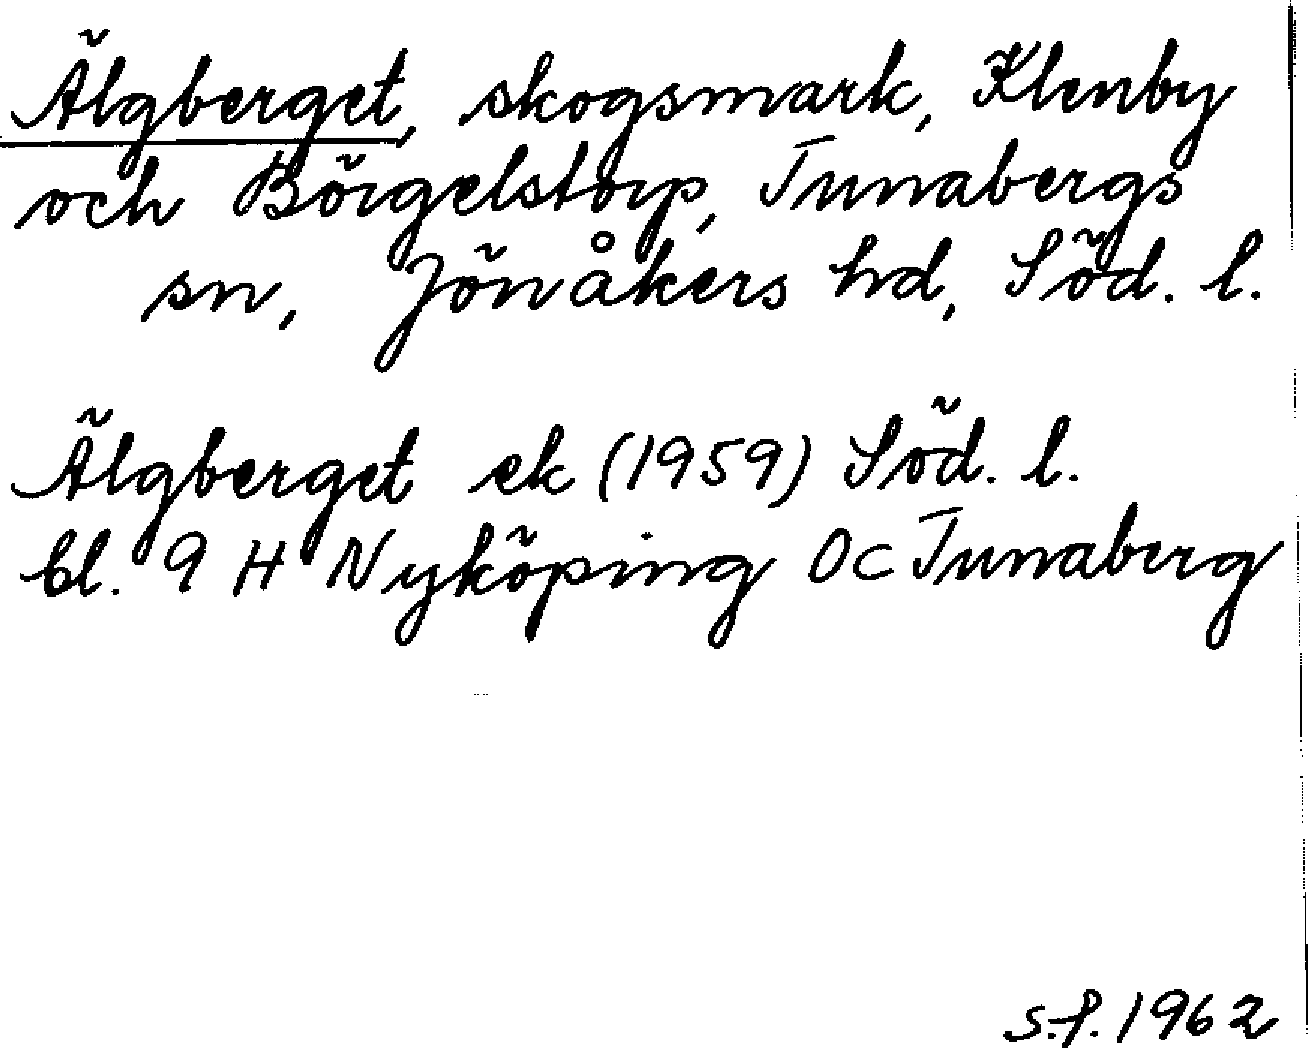 Älgberget, skogsmark, Klenby
och Börgelstorp, Tunabergs
sn, Jönåkers hd, Söd. l.
Älgberget ek (1959) Söd. l.
bl. 9 H Nyköping OC Tunaberg
s.f. 1962